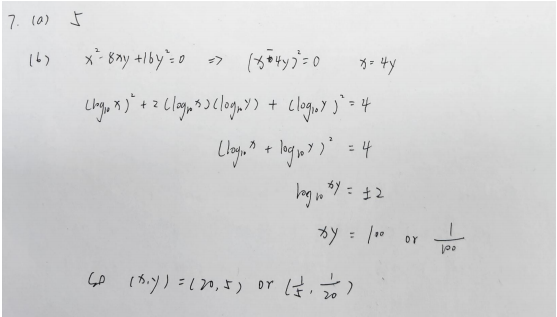 7. (a) 5
(b) x²-8xy+16y²=0 => (x-4y)²=0 x=4y
(log₁₀x)²+2(log₁₀x)(log₁₀y)+(log₁₀y)²=4
(log₁₀x+log₁₀y)²=4
log₁₀xy=±2
xy=100 or 1/100
So (x,y)=(20,5) or (1/5,1/20)